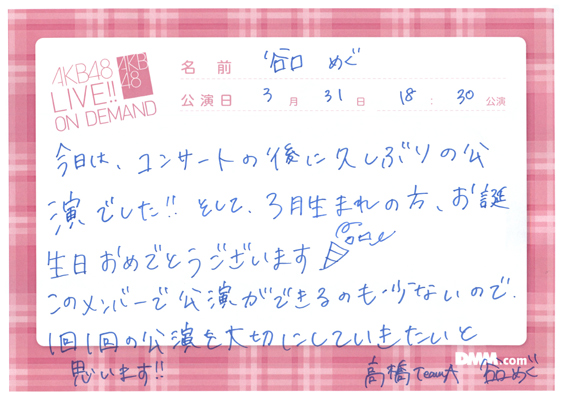 AKB48
LIVE!!
ON DEMAND
AKB
48
名前 谷口 めぐ
公演日 3月31日 18:30公演
今日は、コンサートの後に久しぶりの公
演でした!! そして、3月生まれの方、お誕
生日おめでとうございます
このメンバーで公演ができるのも少ないので、
1回1回の公演を大切にしていきたいと
思います!!
DMM.com
高橋TeamA 谷口めぐ